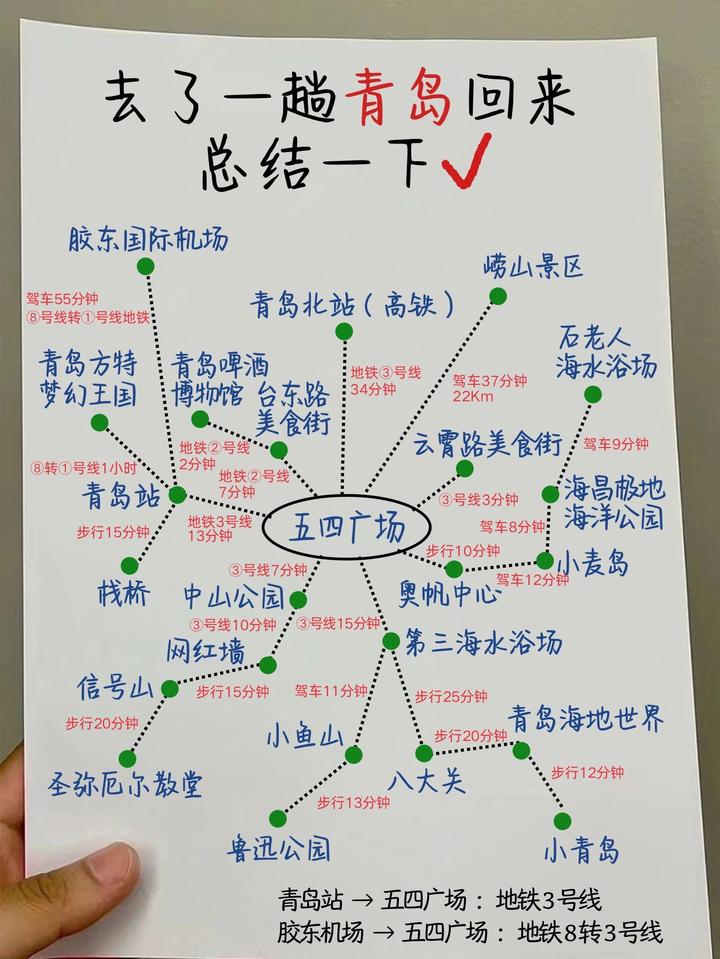 去了一趟青岛回来
总结一下
胶东国际机场
崂山景区
驾车55分钟
⑧号线转①号线地铁
青岛北站（高铁）
石老人
海水浴场
青岛方特
梦幻王国
青岛啤酒
博物馆
台东路
美食街
地铁③号线
34分钟
驾车37分钟
22Km
云霄路美食街
驾车9分钟
地铁②号线
2分钟
⑧转①号线1小时
地铁②号线
7分钟
③号线3分钟
海昌极地
海洋公园
青岛站
地铁3号线
13分钟
五四广场
驾车8分钟
步行15分钟
步行10分钟
小麦岛
驾车12分钟
栈桥
③号线7分钟
中山公园
奥帆中心
③号线10分钟
③号线15分钟
网红墙
第三海水浴场
信号山
步行15分钟
驾车11分钟
步行25分钟
步行20分钟
小鱼山
步行20分钟
青岛海地世界
圣弥厄尔教堂
八大关
步行12分钟
步行13分钟
鲁迅公园
小青岛
青岛站 → 五四广场： 地铁3号线
胶东机场 → 五四广场： 地铁8转3号线